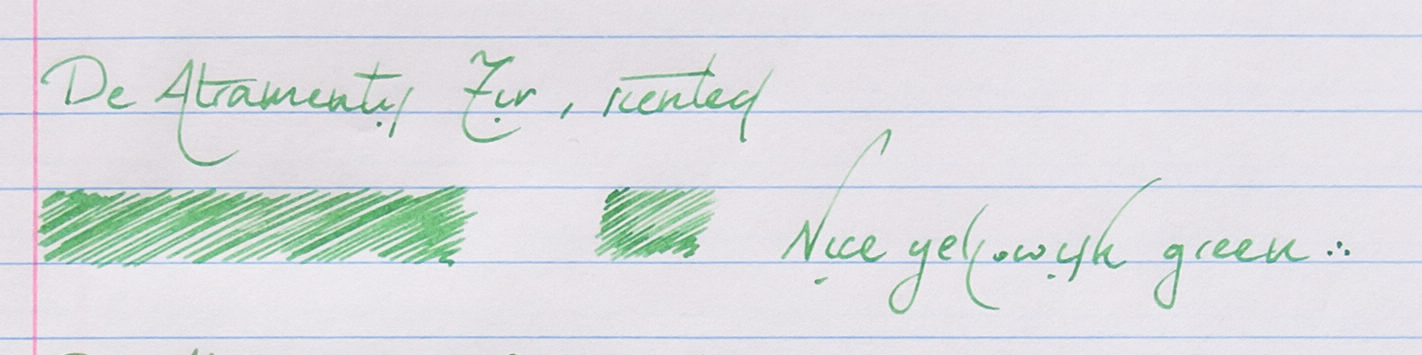 De Atramentis Fir, scented
Nice yellowish green ∴